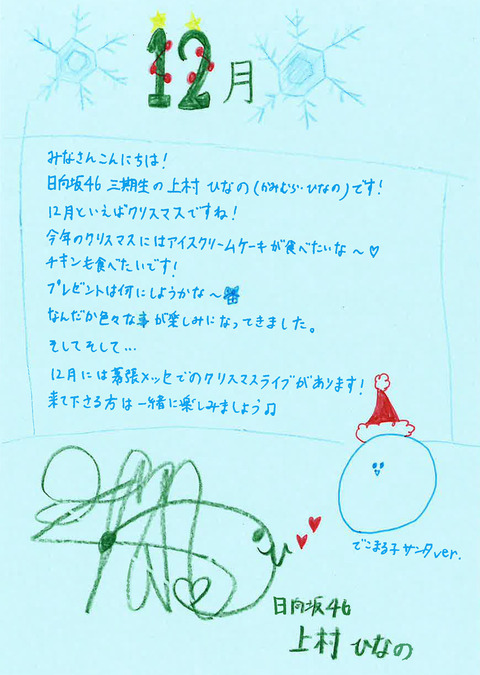 12月
みなさんこんにちは!
日向坂46 三期生の上村 ひなの(かみむら・ひなの)です!
12月といえばクリスマスですね!
今年のクリスマスにはアイスクリームケーキが食べたいな〜♡
チキンも食べたいです!
プレゼントは何にしようかな〜
なんだか色々な事が楽しみになってきました。
そしてそして…
12月には幕張メッセでのクリスマスライブがあります!
来て下さる方は一緒に楽しみましょう♫
でこまる子サンタver.
日向坂46
上村 ひなの